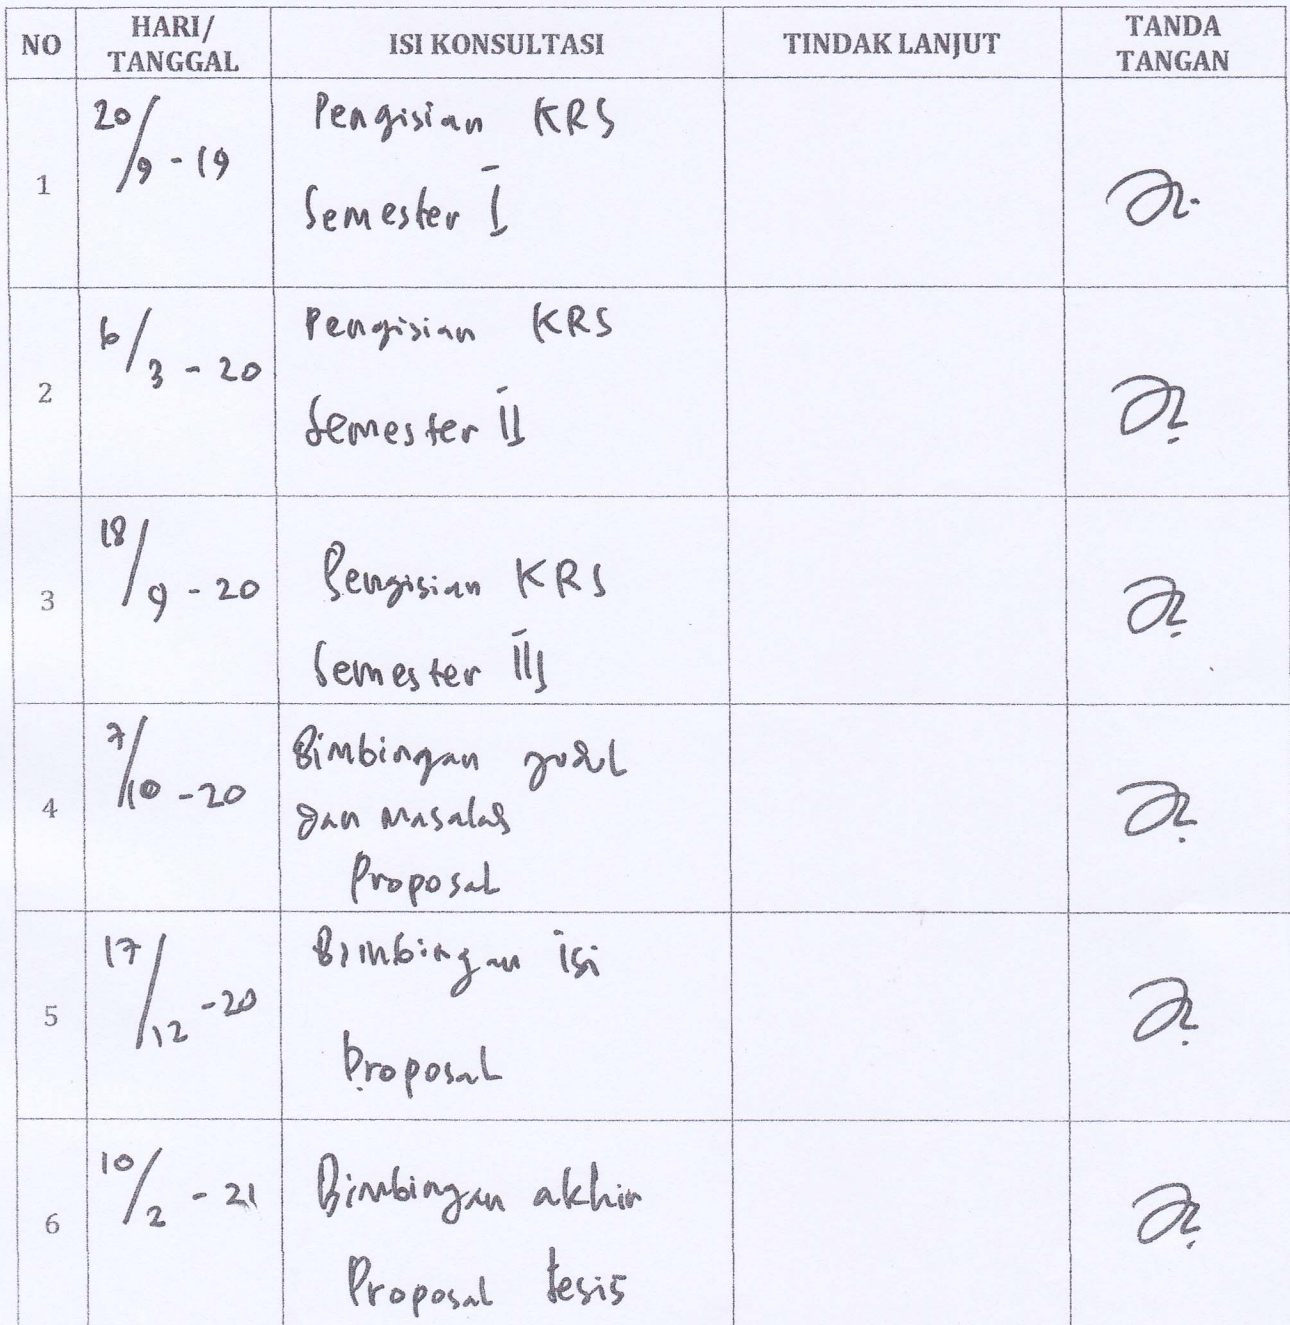 NO HARI/ TANGGAL ISI KONSULTASI TINDAK LANJUT TANDA TANGAN
1
20/9 - 19
Pengisian KRS
Semester I
2
6/3 - 20
Pengisian KRS
Semester II
3
18/9 - 20
Pengisian KRS
Semester III
4
7/10 - 20
Bimbingan judul
dan masalah
Proposal
5
17/12 - 20
Bimbingan isi
proposal
6
10/2 - 21
Bimbingan akhir
Proposal tesis